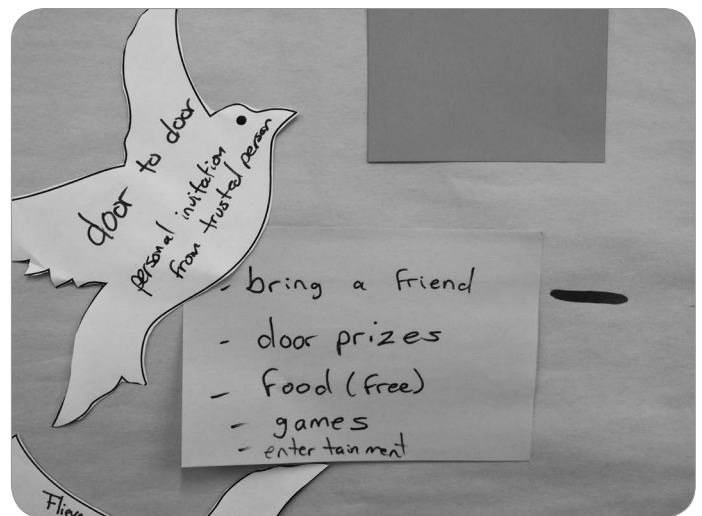 door to door
personal invitation
from trusted person
- bring a friend
- door prizes
- food (free)
- games
- entertainment